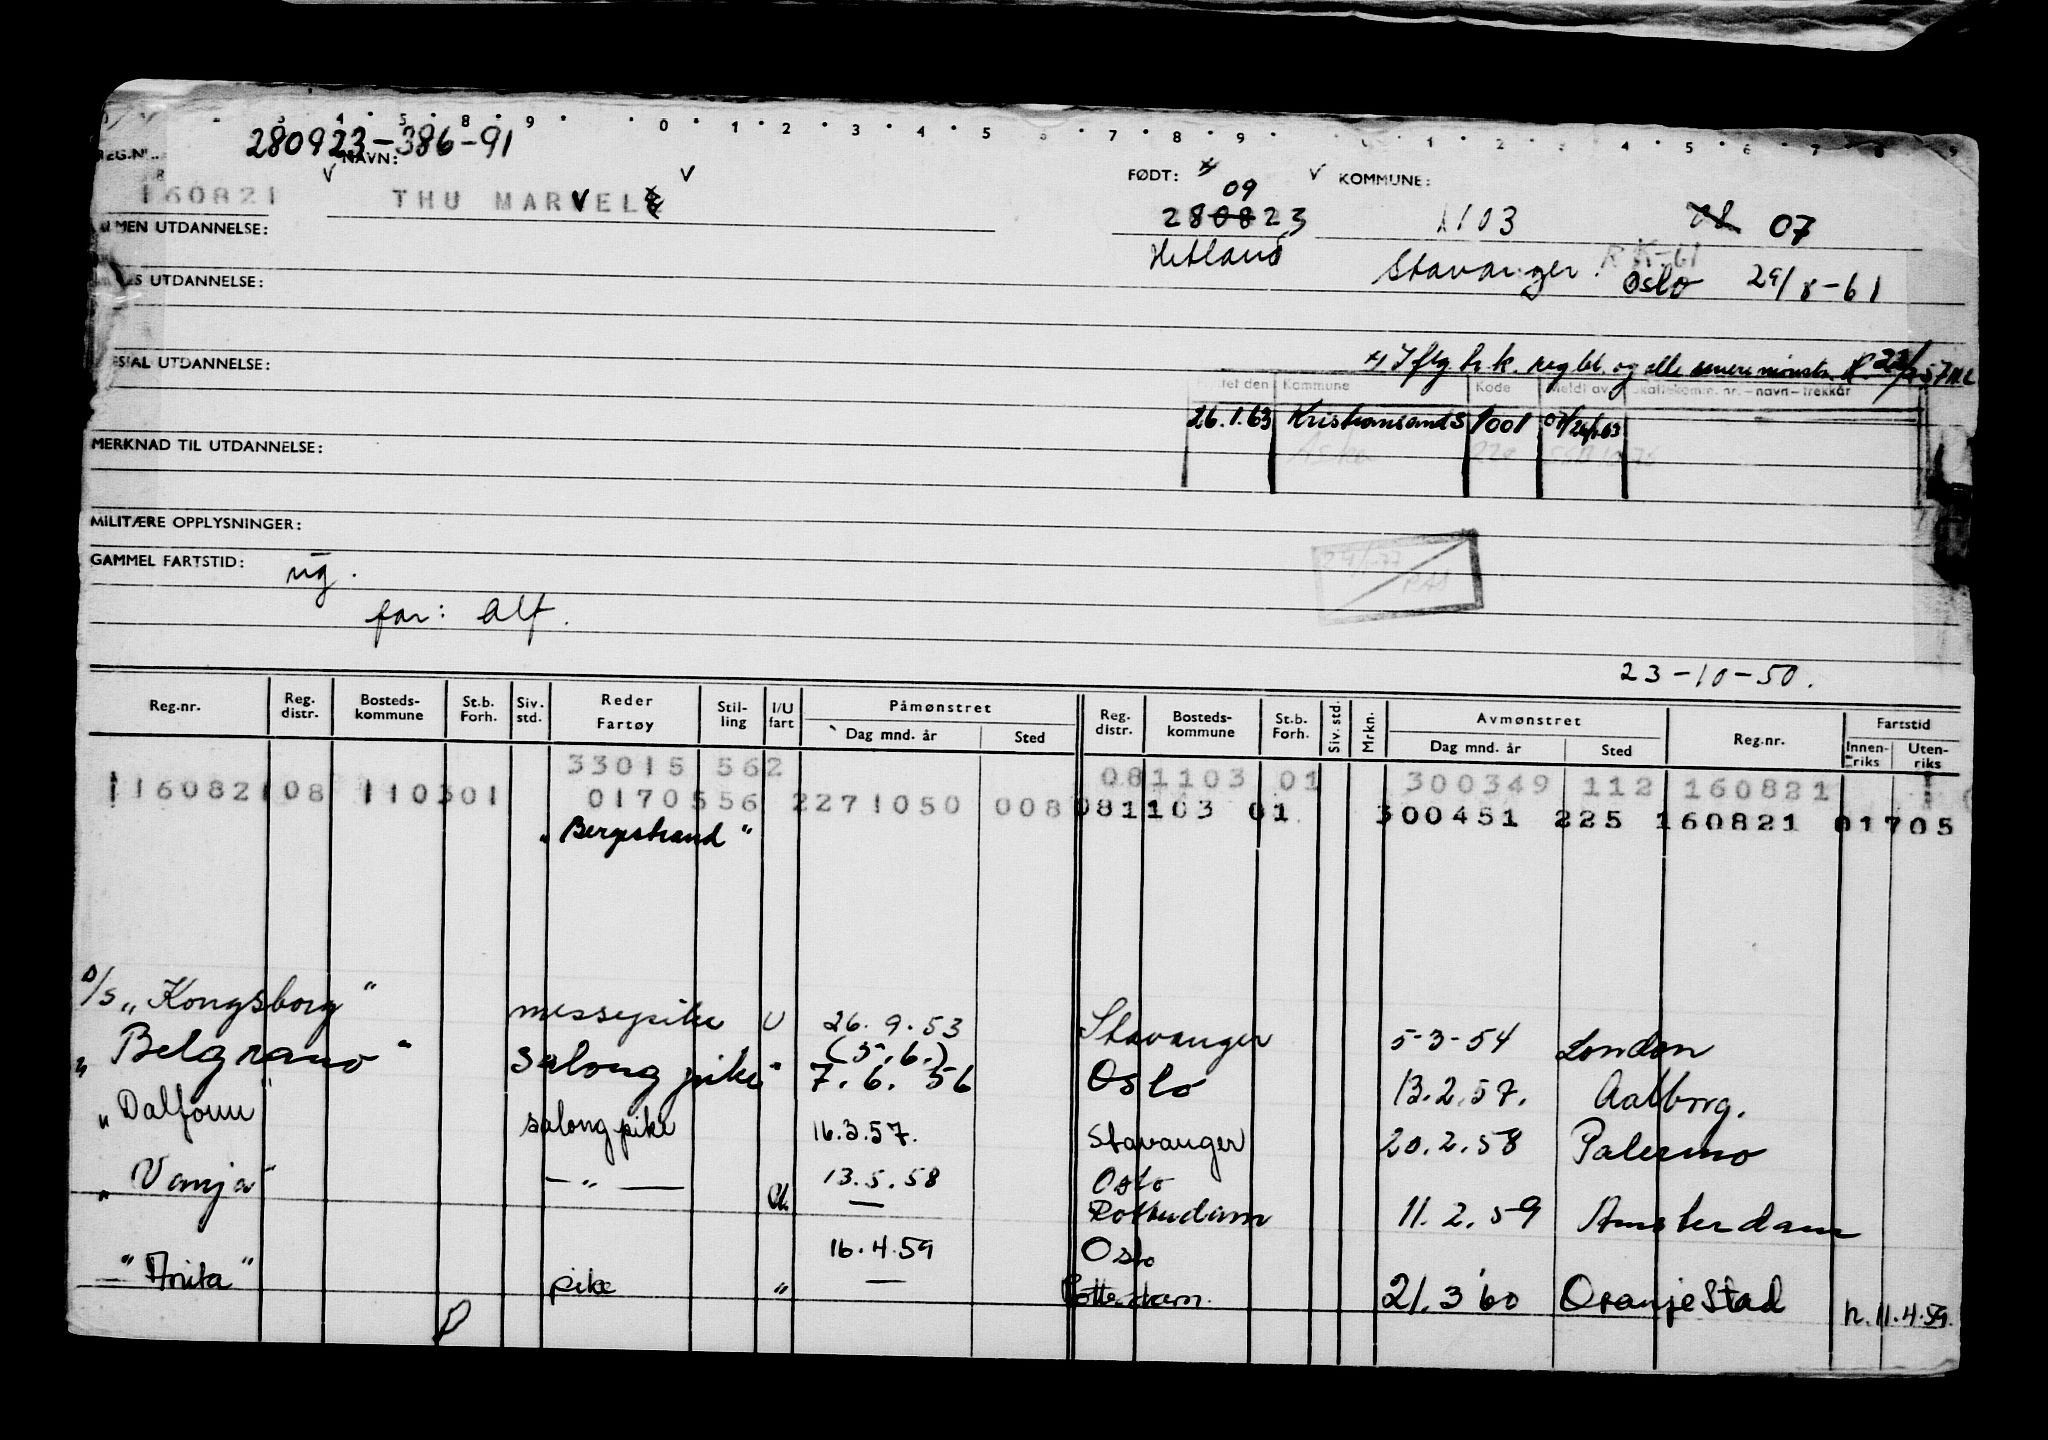 280923-386-91
REG.NR. NAVN: FØDT: KOMMUNE:
160821 THU MARVEL 09
280823 1103 08 07
Hetland Stavanger Oslo 29/8-61
UTDANNELSE:
UTDANNELSE:
UTDANNELSE:
Kommune Kode Meldt av Skattekomm. nr. - navn - trekkår
26.1.63 Kristiansand S 1001
MERKNAD TIL UTDANNELSE:
MILITÆRE OPPLYSNINGER:
GAMMEL FARTSTID: ug.
far: Alf.
23-10-50.
Reg.nr. Reg. distr. Bosteds-kommune St.b. Forh. Siv. std. Reder Fartøy Stil-ling I/U fart Påmønstret Dag mnd. år Sted Reg. distr. Bosteds-kommune St.b. Forh. Siv. std. Mrkn. Avmønstret Dag mnd. år Sted Reg.nr. Fartstid Innen-riks Uten-riks
33015 562 081103 01 300349 112 160821
116082108 110301 0170556 2271050 008 081103 01 300451 225 160821 01705
"Bergestrand"
D/S "Kongsborg" messepike U 26.9.53 Stavanger 5-3-54 London
(5.6.)
" Belgrano " salongpike " 7.6.56 Oslo 13.2.57. Aalborg.
" Dalfonn" salongpike 16.3.57. Stavanger 20.2.58 Palermo
" Vanja" — " — 13.5.58 Oslo
— Rotterdam 11.2.59 Amsterdam
16.4.59 Oslo
"Anita" pike " — Rotterdam. 21.3 60 OranjeStad n. 11.4.59.